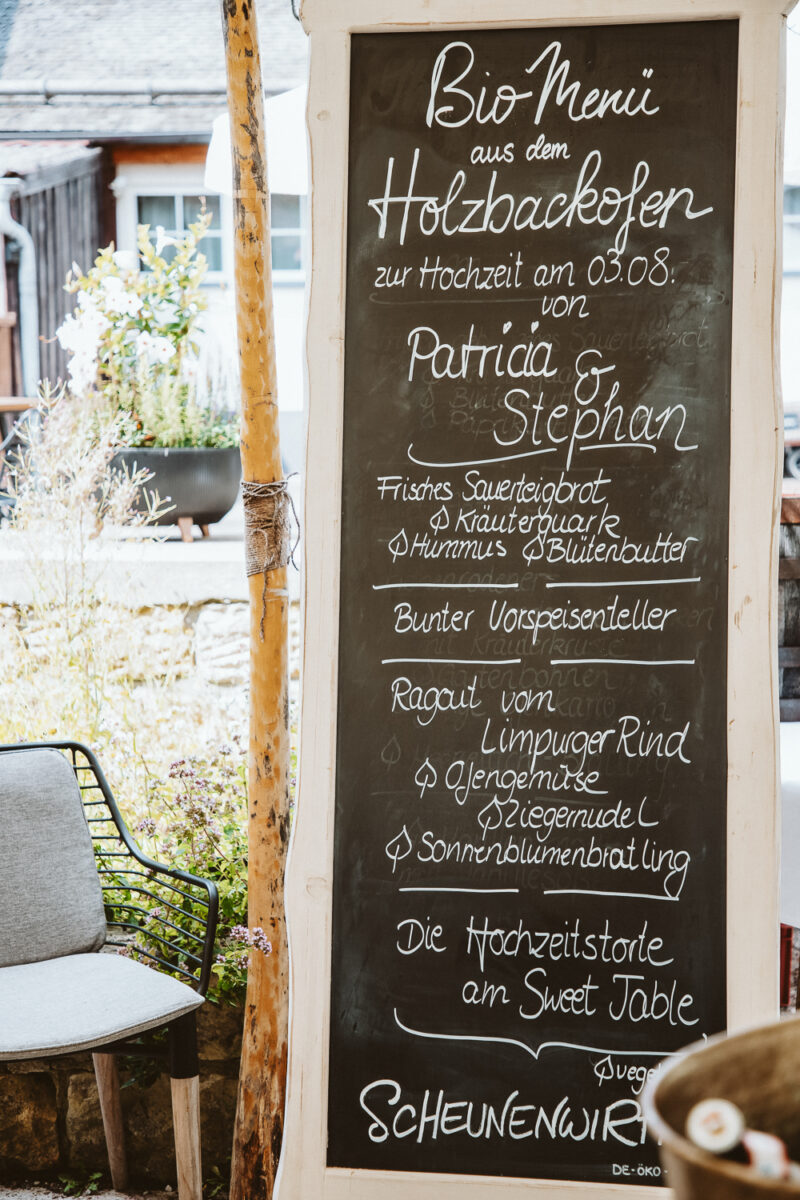 Bio Menü
aus dem
Holzbackofen
zur Hochzeit am 03.08.
von
Patricia
&
Stephan
Frisches Sauerteigbrot
Kräuterquark
Hummus Blütenbutter
Bunter Vorspeisenteller
Ragout vom
Limpurger Rind
Ofengemüse
Riegernudel
Sonnenblumenbratling
Die Hochzeitstorte
am Sweet Table
SCHEUNENWIR
DE-ÖKO-